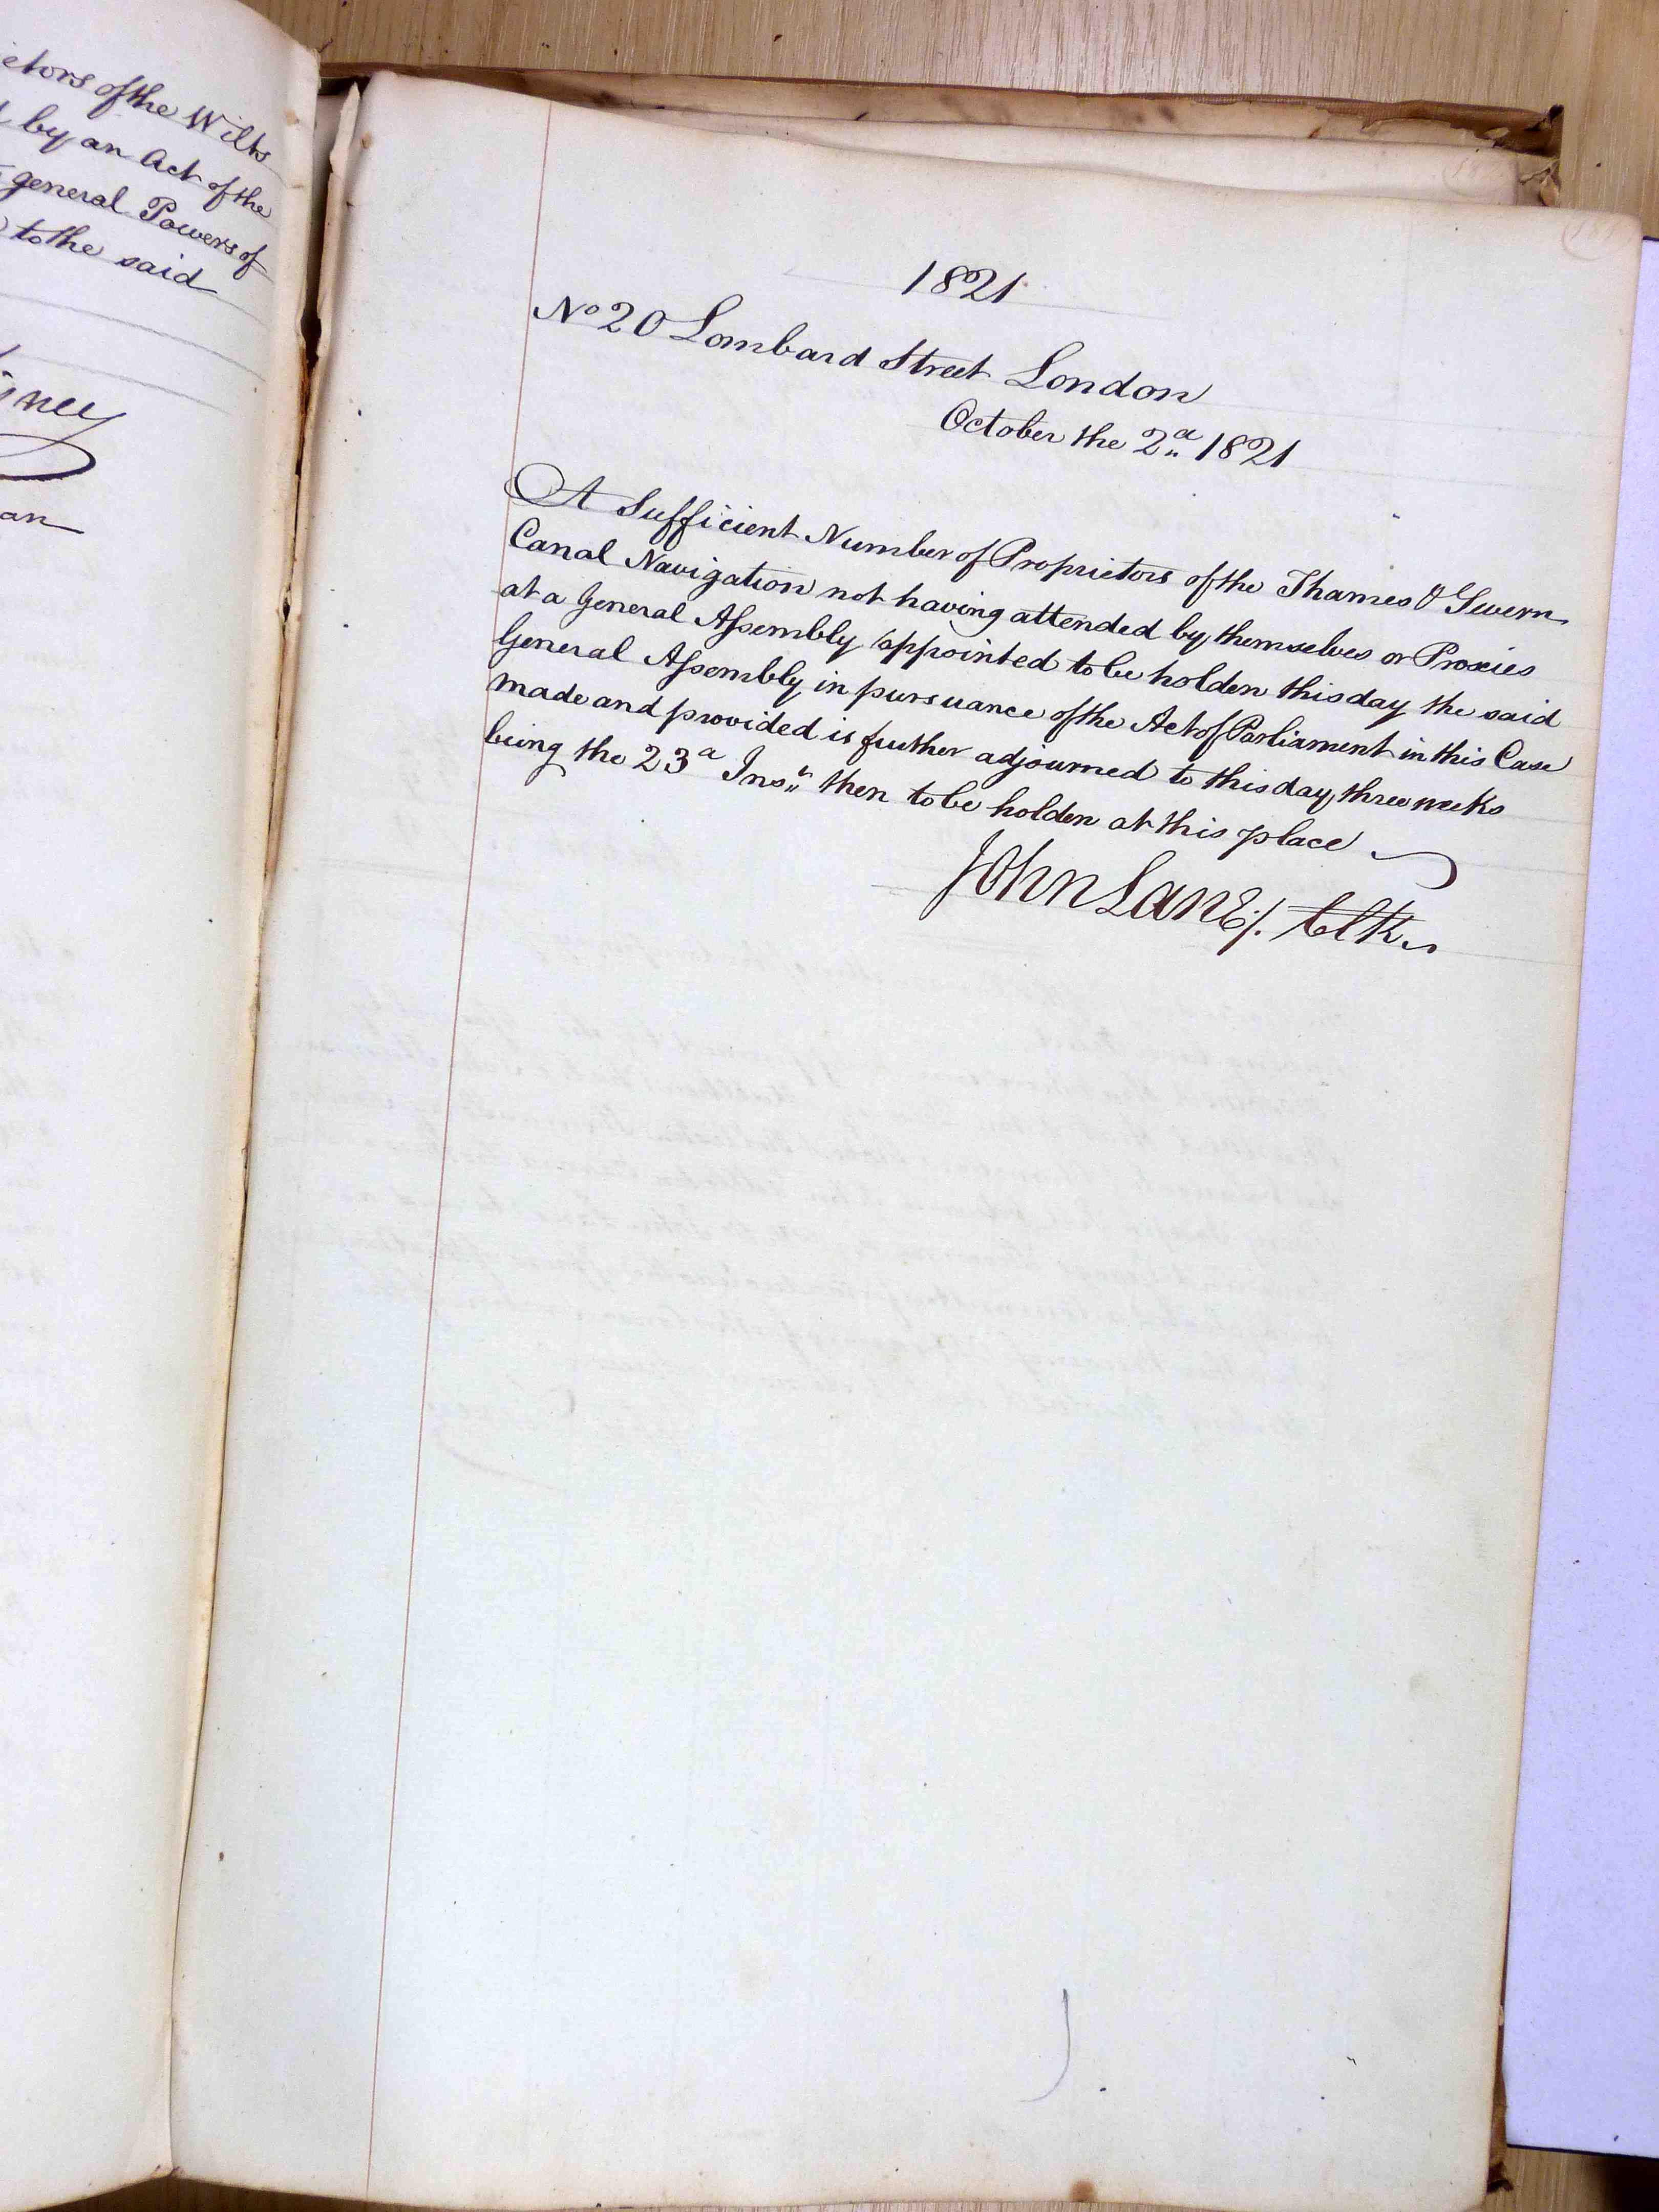 etors of the Wilts
by an Act of the
general Powers of
to the said
an
1821
No 20 Lombard Street London
October the 2d 1821
A Sufficient Number of Proprietors of the Thames & Severn
Canal Navigation not having attended by themselves or Proxies
at a General Assembly appointed to be holden this day the said
General Assembly in pursuance of the Act of Parliament in this Case
made and provided is further adjourned to this day three weeks
being the 23d Inst then to be holden at this place
John Lane Clk